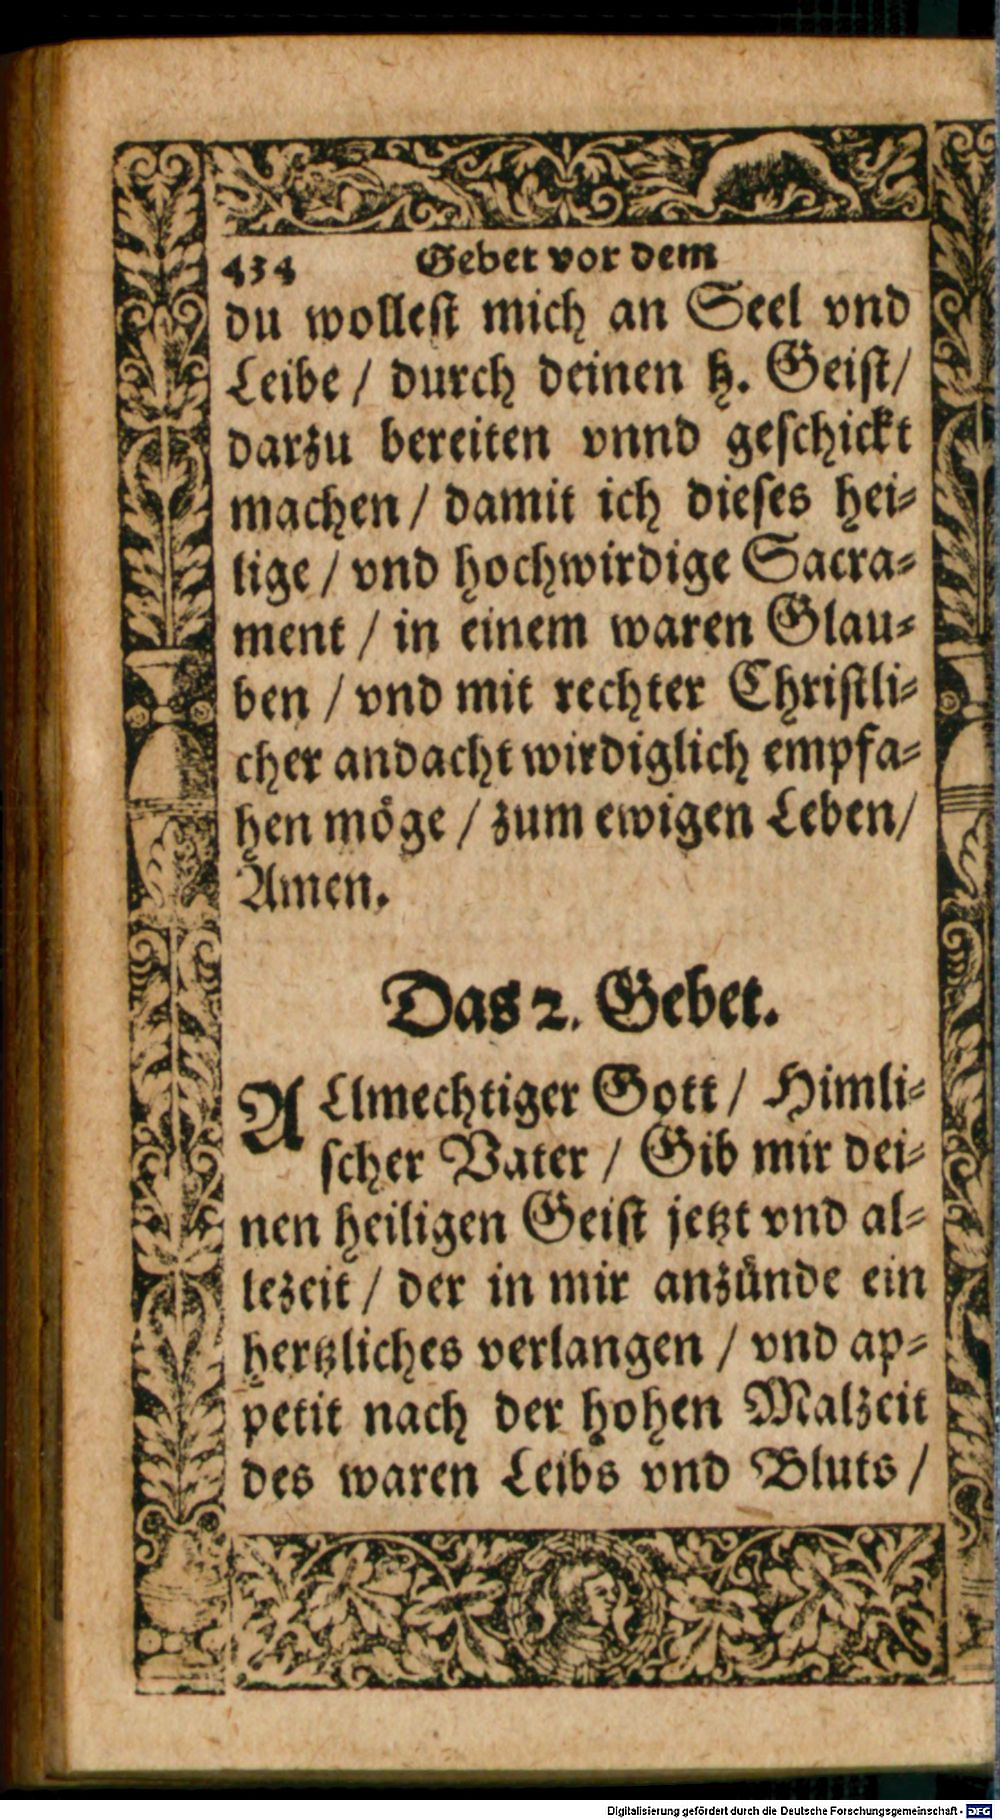 434 Gebet vor dem
du wolleſt mich an Seel vnd
Leibe / durch deinen H. Geiſt/
darzu bereiten vnnd geſchickt
machen / damit ich dieſes hei⸗
lige / vnd hochwirdige Sacra⸗
ment / in einem waren Glau⸗
ben / vnd mit rechter Chriſtli⸗
cher andacht wirdiglich empfa⸗
hen möge / zum ewigen Leben/
Amen.
Das 2. Gebet.
ALlmechtiger Gott / Himli⸗
ſcher Vater / Gib mir dei⸗
nen heiligen Geiſt jetzt vnd al⸗
lezeit / der in mir anzünde ein
hertzliches verlangen / vnd ap⸗
petit nach der hohen Malzeit
des waren Leibs vnd Bluts /
Digitalisierung gefördert durch die Deutsche Forschungsgemeinschaft - DFG